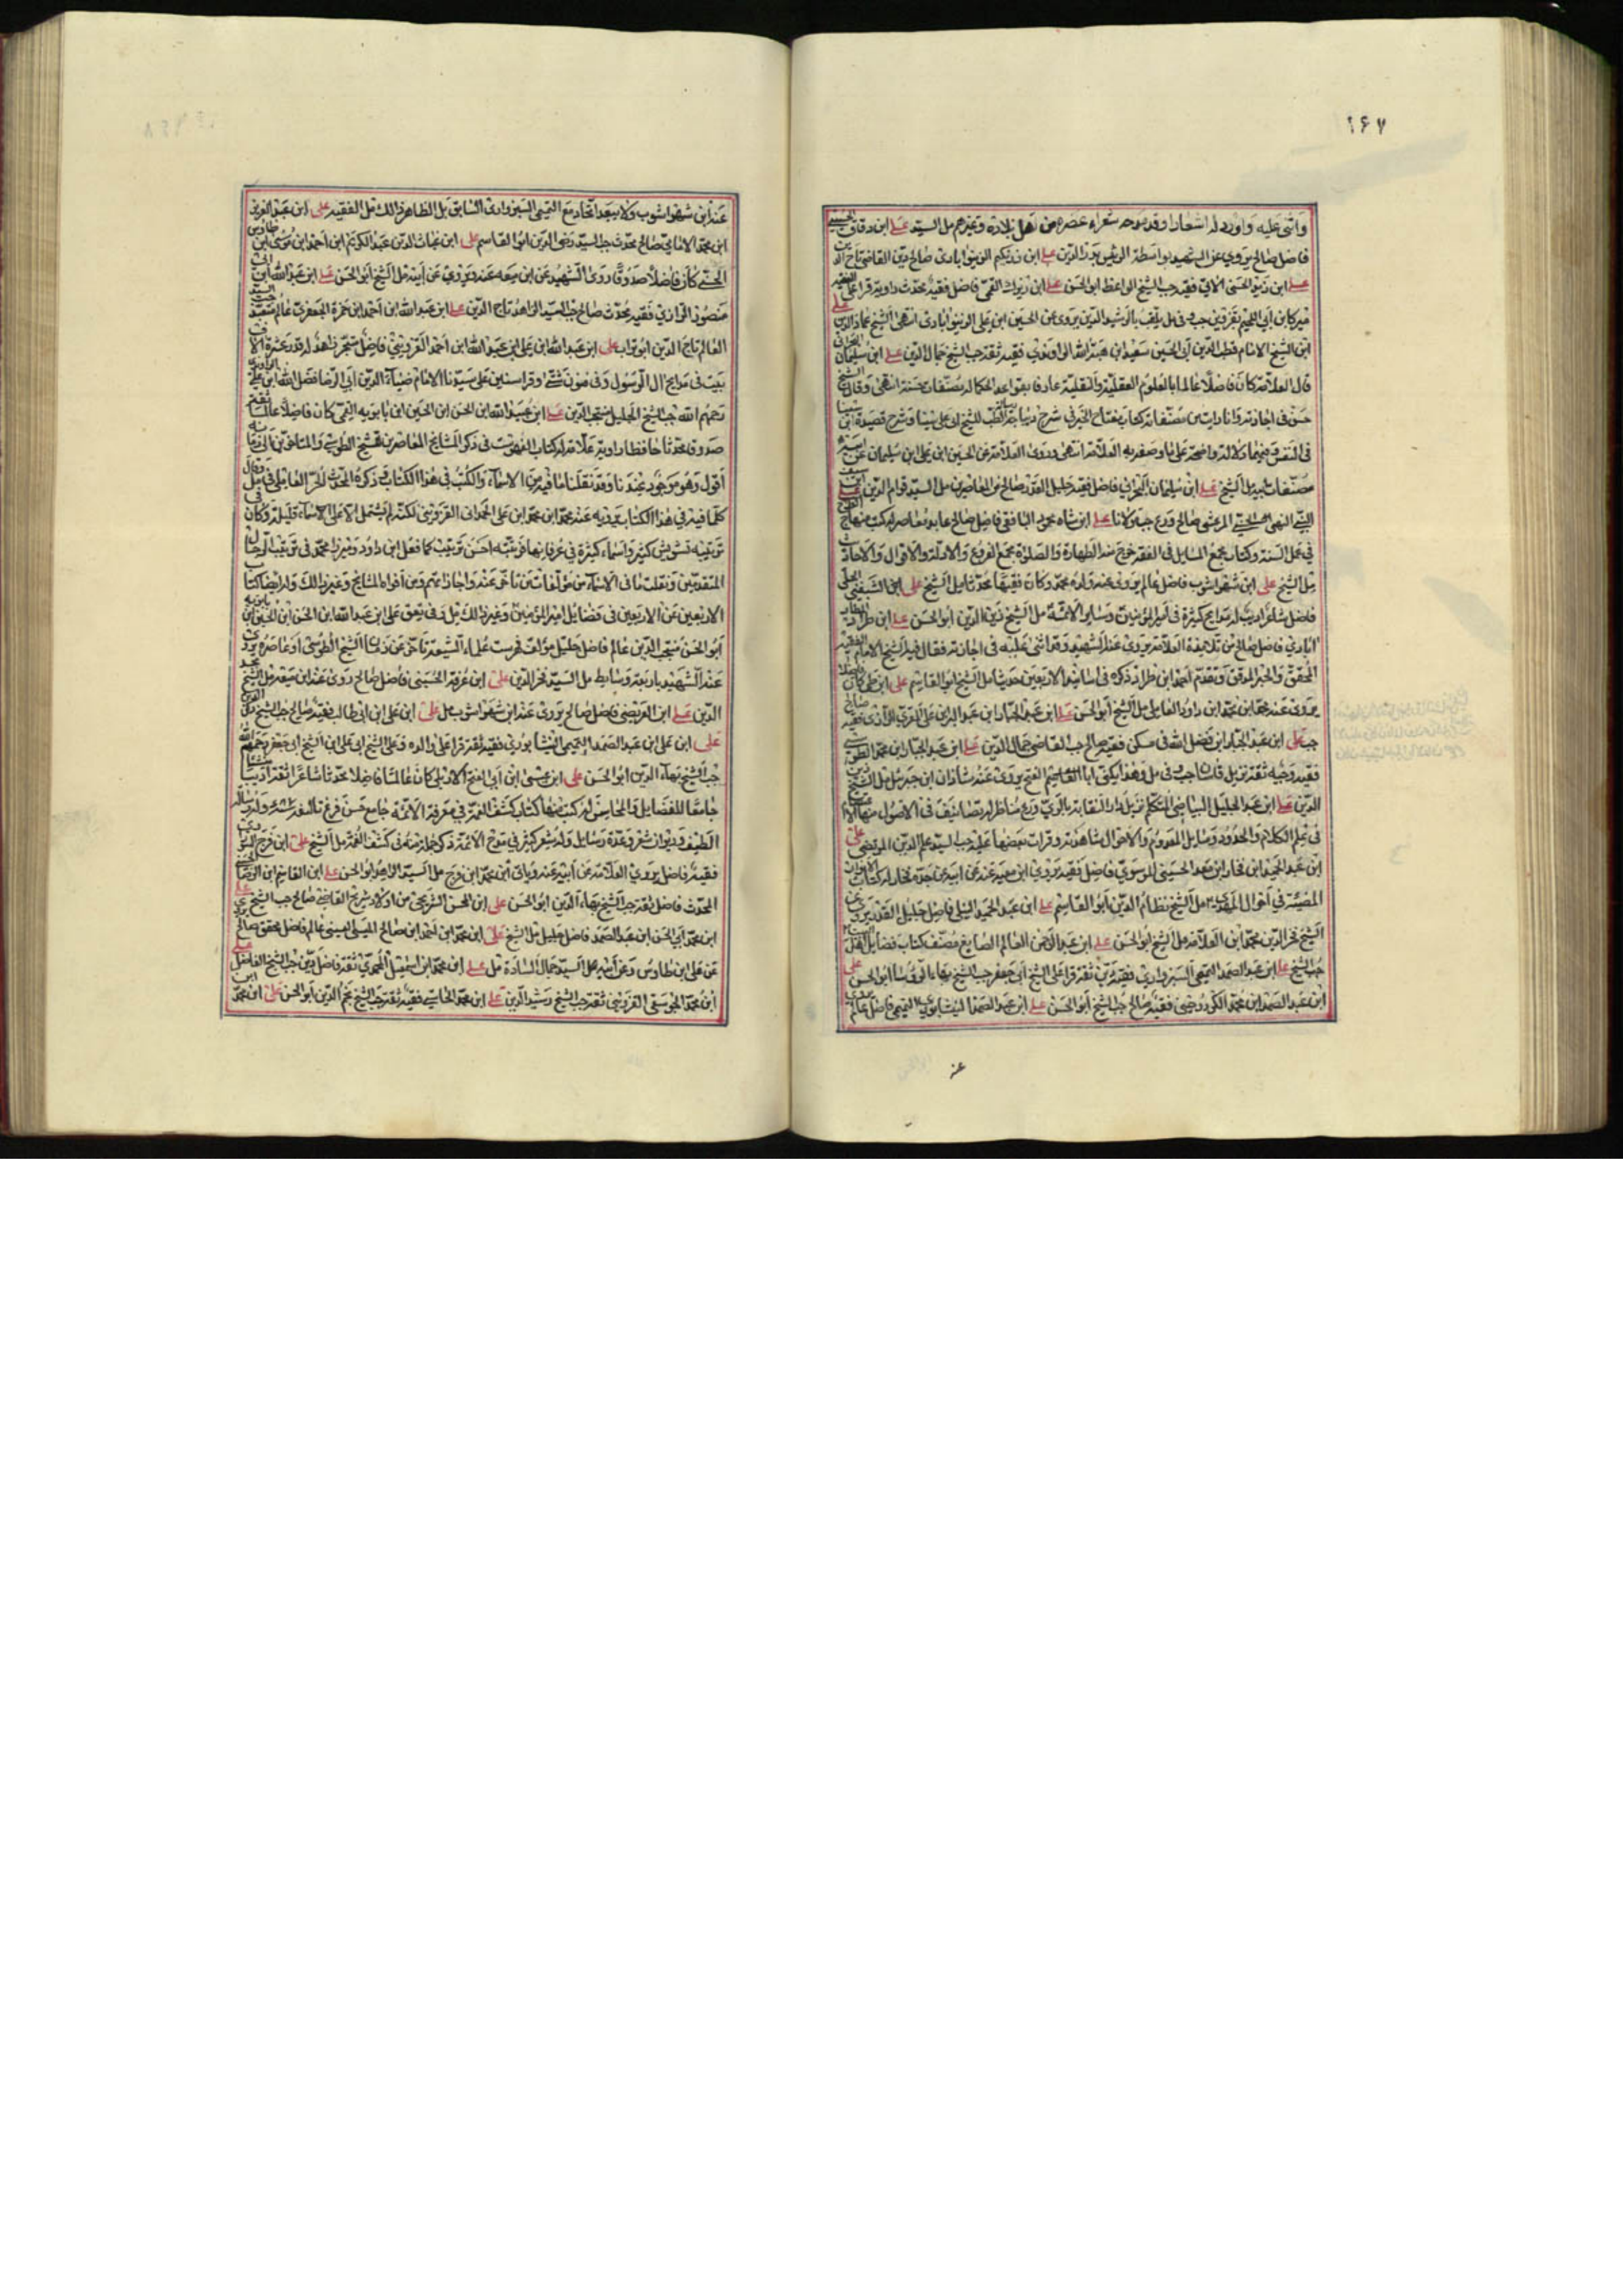 ۱۶۷
واثنى عليه واورد له اشعارا وقد مدحه شعراء عصره من اهل بلاده وغيرهم مل السيد على ابن دقاق الحسيني
فاضل صالح يروي عن الشهيد بواسطة الرئيس بدر الدين على ابن القاضي تاج الد
على ابن زيد الحسني الابي فقيه جب الشيخ الواعظ ابو الحسن على ابن زيرك القمي فاضل فقيه محدث راوية قرا على الفقيه
ميركا ابن ابي اللجيم بقزوين جب وفي مل يلقب بالرشيد الدين يروى عن الحسين ابن على انتهى الشيخ عماد الدين على
ابن الشيخ الامام قطب الدين ابي الحسين سعيد ابن هبة الله الراوندي فقيه ثقة جب الشيخ جمال الدين على ابن سليمان البحراني
قال العلامة كان فاضلا عالما بالعلوم العقلية والنقلية عارفا بقواعد الحكما له مصنفات حسنة انتهى وقال الشيخ
حسن في اجازته وانا رايت من مصنفاته كتاب مفتاح الخير في شرح ديباجة رسالة الطير للشيخ ابي على سينا وشرح قصيدة ابن سينا
في النفس وفيهما دلالة واضحة على ما وصفه به العلامة انتهى وروى العلامة عن الحسين ابن على ابن سليمان عن ابيه
مصنفات ابيه مل الشيخ على ابن سليمان البحراني فاضل فقيه جليل القدر صالح من المعاصرين مل السيد قوام الدين على
المرعشي صالح ورع جب مولانا على ابن شاه محمود البافقي فاضل صالح عابد معاصر له كتب منهاج
في عمل السنة وكتاب جمع المسايل في الفقه خرج منه الطهارة والصلوة بجمع الفروع والادلة والاقوال والاحاديث
مل الشيخ على ابن شهراشوب فاضل عالم يروى عنه ولده محمد وكان فقيها محدثا مل الشيخ على ابن الشهفيني الحلي
فاضل شاعر اديب له مدايح كثيرة في امير المؤمنين وساير الائمة مل الشيخ زين الدين ابو الحسن على ابن طراد
فاضل صالح من تلامذة العلامة يروى عنه الشهيد وقد اثنى عليه في اجازته فقال فيه الشيخ الامام الفقيه
المحقق والحبر المدقق وتقدم احمد ابن طراد ذكره في اسانيد الاربعين حديثا مل الشيخ ابو القاسم على ابن طي كان فاضلا
يروى عنه محمد ابن محمد ابن داود العاملي مل الشيخ ابو الحسن على ابن عبد الجبار ابن عبد الله ابن على المقري الرازي فقيه صالح
جب على ابن عبد الجبار ابن فضل الله في مسكن فقيه صالح جب القاضي جمال الدين على ابن عبد الجبار ابن محمد الطوسي
فقيه وجيه ثقة نزيل قاسان جب وفي مل وهذا يكنى ابا القاسم يروى عنه شاذان ابن جبرئيل مل الشيخ زين
الدين على ابن عبد الجليل البياضي المتكلم نزيل دار النقابة بالري ورع مناظر له تصانيف في الاصول منها
في علم الكلام والحدود ومسايل المعدوم والاحوال شاهدته وقرات بعضها عليه جب السيد علم الدين المرتضى على
ابن عبد الحميد ابن فخار ابن معد الحسيني الموسوي فاضل فقيه يروي ابن معية عنه عن ابيه عن جده فخار له كتاب الانوار
المضيئة في احوال المهدى مل الشيخ نظام الدين ابو القاسم على ابن عبد الحميد النيلي فاضل جليل القدر يروى عن
الشيخ فخر الدين محمد ابن العلامة مل الشيخ ابو الحسن على ابن عبد الرحمن العالم الصايغ مصنف كتاب فضايل اهل
جب الشيخ على ابن عبد الصمد التميمي السبزواري فقيه دين ثقة قرا على الشيخ ابي جعفر جب الشيخ بهاء الروسا ابو الحسن على
ابن عبد الصمد ابن محمد فقيه صالح جب الشيخ ابو الحسن على ابن عبد الصمد النيشابوري التميمي فاضل عالم يروى
عنه ابن شهراشوب ولا يبعد اتحاده مع التميمي السبزواري السابق بل الظاهر ذلك مل الفقيه على ابن عبد العزيز
ابن محمد الامامي صالح محدث جب السيد رضى الدين ابو القاسم على ابن غياث الدين عبد الكريم ابن احمد ابن موسى ابن طاوس
الحسني كان فاضلا صدوقا روى الشهيد عن ابن معيه عنه ويروي عن ابيه مل الشيخ ابو الحسن على ابن عبد الله ابن
منصور الرازي فقيه محدث صالح جب السيد الزاهد تاج الدين على ابن عبد الله ابن احمد ابن حمزة الجعفري عالم متعبد جب السيد
العالم تاج الدين ابو تراب على ابن عبد الله ابن على ابن عبد الله ابن احمد الغزويني فاضل متبحر زاهد له قدر عشرة الاف
بيت في مدايح ال الرسول وفي فنون شتى وقرا سنين على سيدنا الامام ضياء الدين ابي الرضا فضل الله ابن على الراوندي
رحمهم الله جب الشيخ الجليل منتجب الدين على ابن عبيد الله ابن الحسن ابن الحسين ابن بابويه القمي كان فاضلا عالما ثقة
صدوقا محدثا حافظا راوية علامة له كتاب الفهرست في ذكر المشايخ المعاصرين للشيخ الطوسي والمتاخرين الى زمانه
اقول وهو موجود عندنا وقد نقلنا ما فيه من الاسماء والكتب في هذا الكتاب ذكره المحدث الحر العاملي في مل وقال
كلما فيه في هذا الكتاب يرويه عنه محمد ابن محمد ابن على الحمداني القزويني لكنه لم يشتمل الا على الاسماء قليلة وكان في
ترتيبه تشويش كثير واسماء كثيرة في غير بابها فرتبته احسن ترتيب كما فعل ابن داود وميرزا محمد في ترتيب الرجال
المتقدمين ونقلت باقي الاسماء من مؤلفات من تاخر عنه واجازاتهم ومن افواه المشايخ وغير ذلك وله ايضا كتاب
الاربعين عن الاربعين في فضايل امير المؤمنين وغير ذلك مل وفي تعق على ابن عبد الله ابن الحسن ابن الحسين ابن بابويه
ابو الحسن منتجب الدين عالم فاضل جليل مؤلف فهرست علماء الشيعة تاخر عن زمان الشيخ الطوسي او عاصره يروى
عنه الشهيد باربعة وسايط مل السيد فخر الدين على ابن عرفة الحسيني فاضل صالح روى عنه ابن معية مل الشيخ مجد
الدين على ابن العريضي فاضل صالح يروى عنه ابن شهراشوب مل على ابن على ابن ابي طالب فقيه صالح جب الشيخ ركن الدين
على ابن على ابن عبد الصمد التميمي النيشابوري فقيه ثقة قرا على والده وعلى الشيخ ابي على ابن الشيخ ابي جعفر رحمهم الله
جب الشيخ بهاء الدين ابو الحسن على ابن عيسى ابن ابي الفتح الاربلي كان عالما فاضلا محدثا شاعرا ثقة اديبا منشئا
جامعا للفضايل والمحاسن له كتب منها كتاب كشف الغمة في معرفة الائمة جامع حسن فرغ تاليفه وله رسالة
الطيف وديوان شعر وعدة رسايل وله شعر كثير في مدح الائمة ذكر جملة منه في كشف الغمة مل الشيخ على ابن فرج
فقيه فاضل يروي العلامة عن ابيه عنه وياتي ابن محمد ابن فرج مل السيد الزاهد ابو الحسن على ابن القاسم ابن الرضا الحسني
المحدث فاضل ثقة جب الشيخ بهاء الدين ابو الحسن على ابن الحسن الشريحي من اولاد شريح القاضي صالح جب الشيخ على
ابن محمد ابي الحسن ابن عبد الصمد فاضل جليل مل الشيخ على ابن محمد ابن احمد ابن صالح السيبي عالم فاضل محقق صالح يروى
عن على ابن طاوس وعن ابيه مل السيد جمال السادة مل على ابن محمد ابن اسمعيل المحمدي ثقة فاضل دين جب الشيخ الفاضل على
ابن محمد الجوسقي القزويني ثقة جب الشيخ رشيد الدين على ابن محمد الحاسي فقيه ثقة جب الشيخ نجم الدين ابو الحسن على ابن محمد ابن